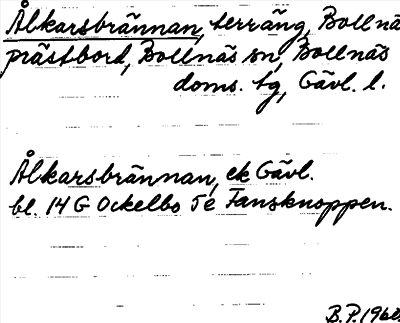 Ålkarsbrännan, terräng, Bollnä
prästbord, Bollnäs sn, Bollnäs
doms. tg, Gävl. l.
Ålkarsbrännan, ek Gävl.
bl. 14 G Ockelbo 5e Fansknoppen.
B.P. 1968